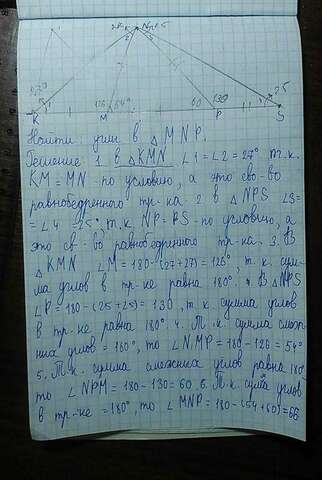 27° N 25
27°
25
126° 54°
60 130
K M P S
Найти: углы в △ MNP.
Решение 1. в △KMN ∠1=∠2=27° т.к.
KM = MN - по условию, а это сво-во
равнобедренного тр-ка 2. в △NPS ∠3=
= ∠4 = 25°, т.к. NP=PS - по условию, а
это св-во равнобедренного тр-ка. 3. В
△KMN ∠M=180-(27+27)=126°, т.к. сум-
ма углов в тр-ке равна 180°. 4. В △NPS
∠P=180-(25+25)=130, т.к. сумма углов
в тр-ке равна 180°. 4. Т.к. сумма смеж-
ных углов = 180°, то ∠NMP=180-126=54°
5. Т.к. сумма смежных углов равна 180°
то ∠NPM=180-130=60 6. Т.к. сумма углов
в тр-ке =180°, то ∠MNP=180-(54+60)=66